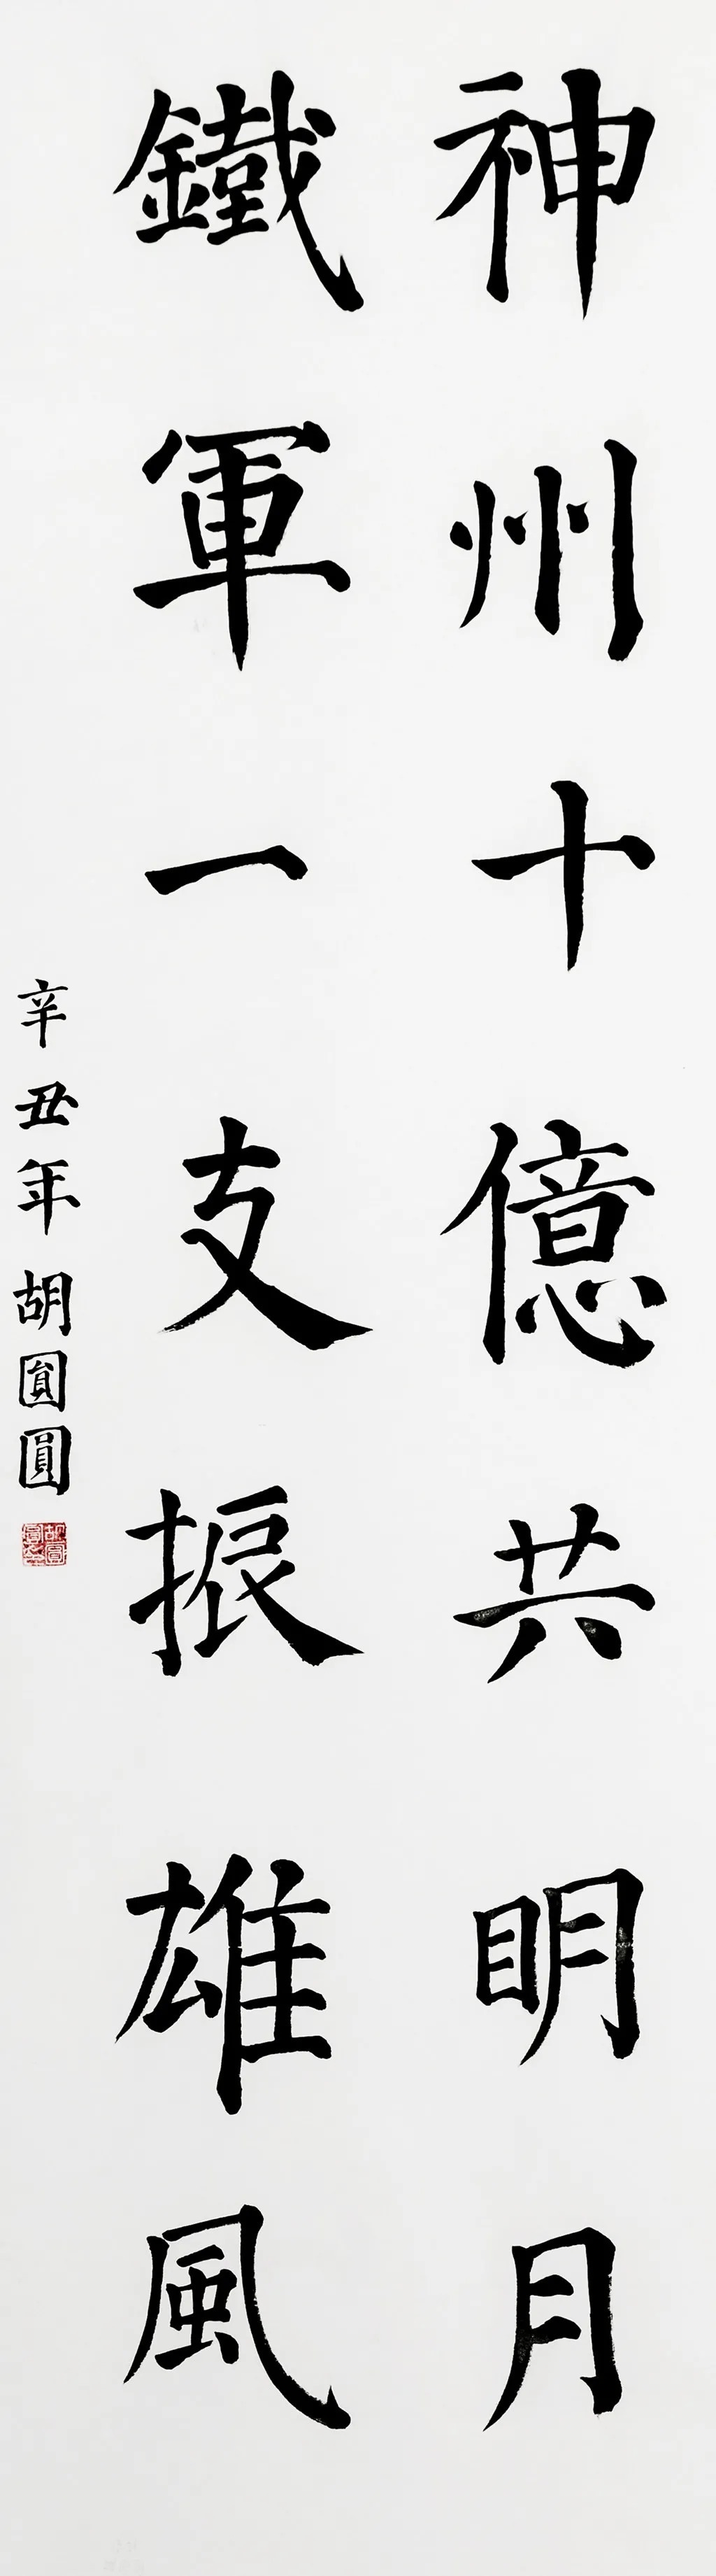 神州十億共明月
鐵軍一支振雄風
辛丑年胡圓圓